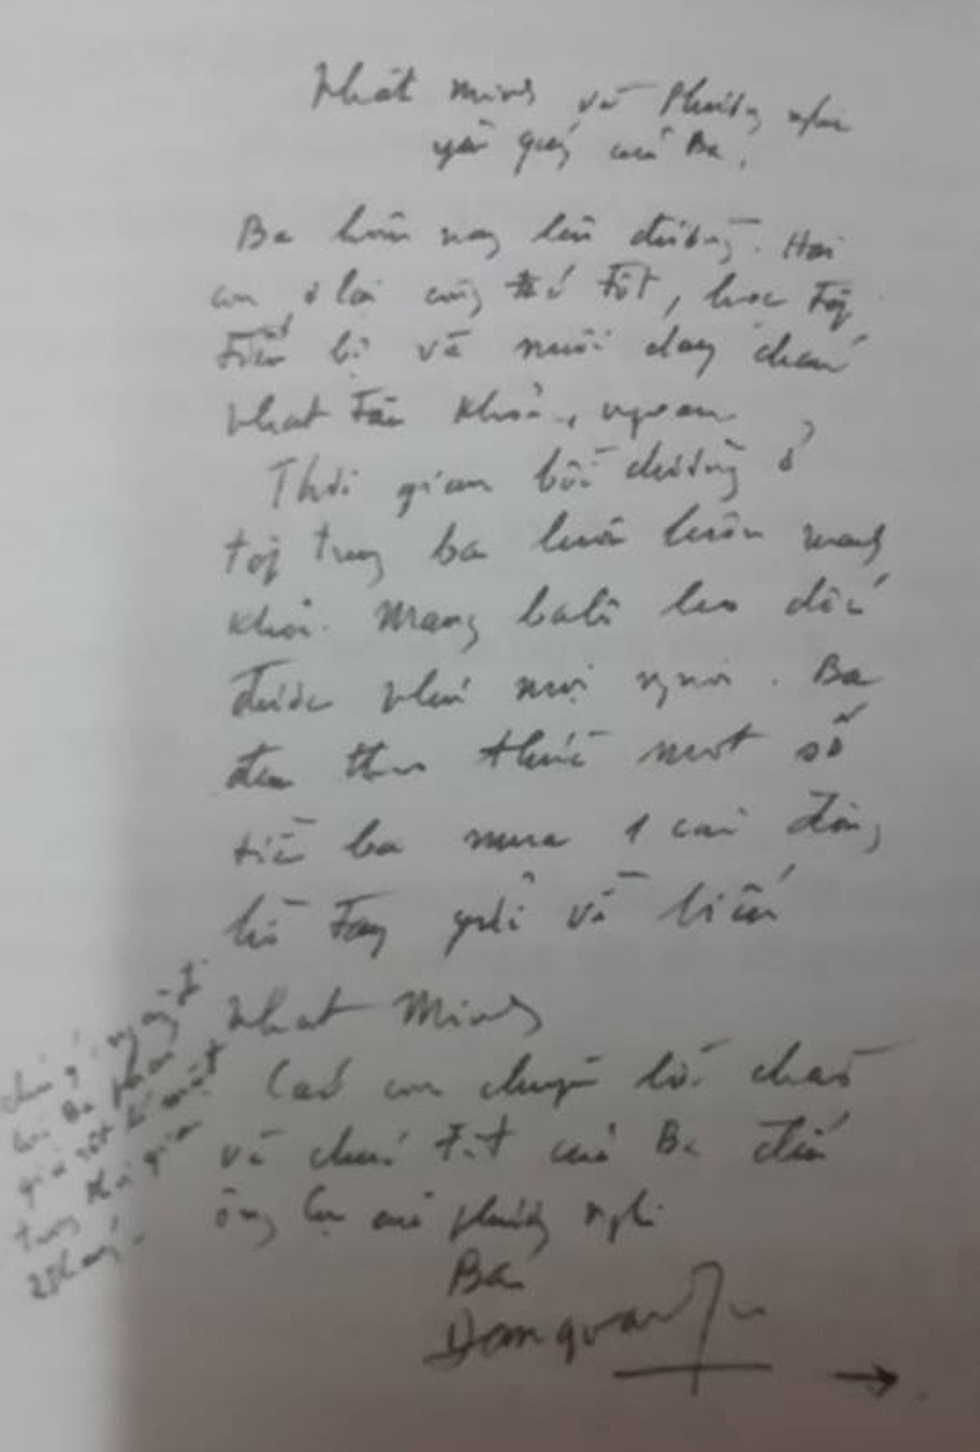 Nhất Minh và Phương Nghi
yêu quý của Ba,
Ba hôm nay lên đường. Hai
con ở lại cùng cố tốt, học tập
tiến bộ và nuôi dạy cháu
Nhat Tân khỏe, ngoan.
Thời gian bồi dưỡng ở
tập trung ba luôn luôn mạnh
khỏe. Mang ba lô leo dốc
được như mọi người. Ba
đem theo một số
tiền ba mua 1 cái đồng
hồ tay gửi về biếu
Nhat Minh
Các con chuyển lời chào
và chúc tết của Ba đến
ông Cụ của Phương Nghi.
Ba
Danquan
chú ý: ngày
Ba phải
giữ rất bí mật
trong thời gian